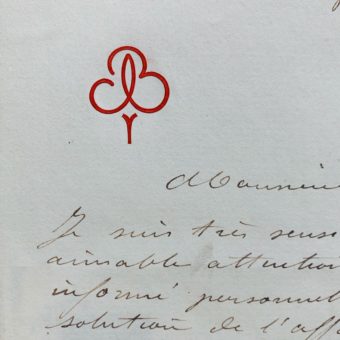 Monsieur
Je suis très sens
aimable attention
informé personnel
solution de l'aff